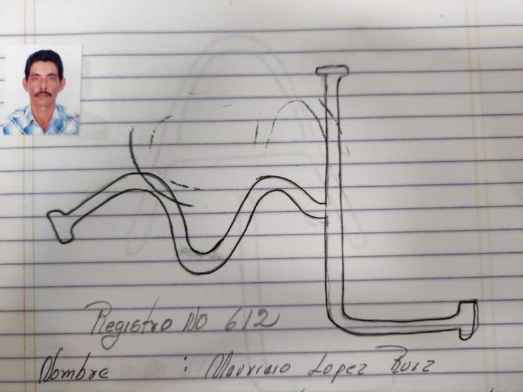 Registro No 612
Nombre : Mauricio Lopez Ruiz